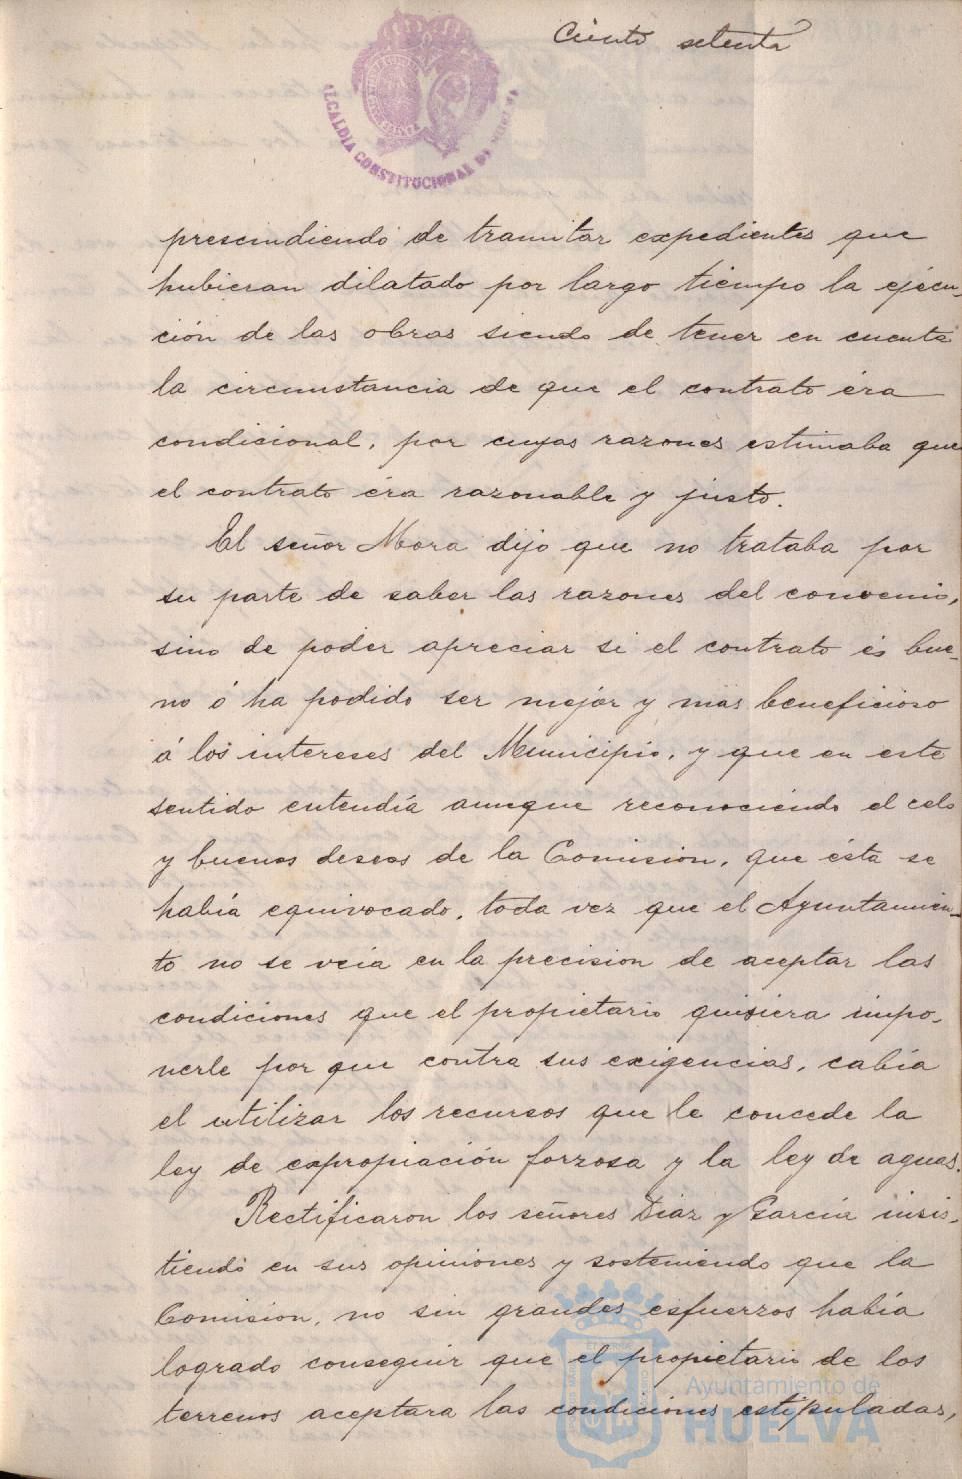 Ciento setenta
ALCALDIA CONSTITUCIONAL DE HUELVA
prescindiendo de tramitar expedientes que
hubieran dilatado por largo tiempo la ejécu-
ción de las obras siendo de tener en cuenta
la circunstancia de que el contrato éra
condicional, por cuyas razones estimaba que
el contrato éra razonable y justo.
El señor Mora dijo que no trataba por
su parte de saber las razones del convenio,
sino de poder apreciar si el contrato és bue-
no ó ha podido ser mejor y mas beneficioso
á los intereses del Municipio, y que en este
sentido entendía aunque reconociéndo el celo
y buenos deseos de la Comision, que ésta se
había equivocado, toda vez que el Ayuntamien-
to no se veia en la precision de aceptar las
condiciones que el propietario quisiera impo-
nerle por que contra sus exigencias, cabía
el utilizar los recursos que le concede la
ley de expropiación forzosa y la ley de aguas.
Rectificaron los señores Diaz y García insis-
tiendo en sus opiniones y sosteniendo que la
Comision, no sin grandes esfuerzos había
logrado conseguir que el propietario de los
terrenos aceptara las condiciones estipuladas,
Ayuntamiento de
HUELVA